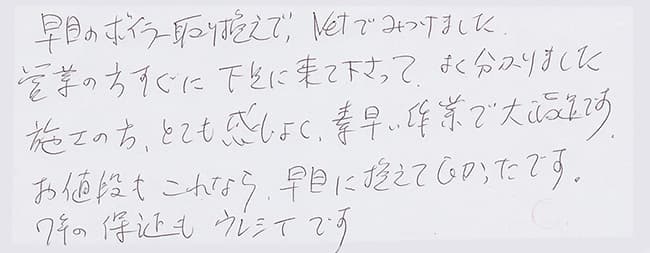 早目のボイラー取り換えで、Netでみつけました.
営業の方すぐに下見に来て下さって、よく分かりました
施工の方、とても感じよく、素早い作業で大満足です.
お値段もこれなら、早目に換えてよかったです。
7年の保証も ウレシイです